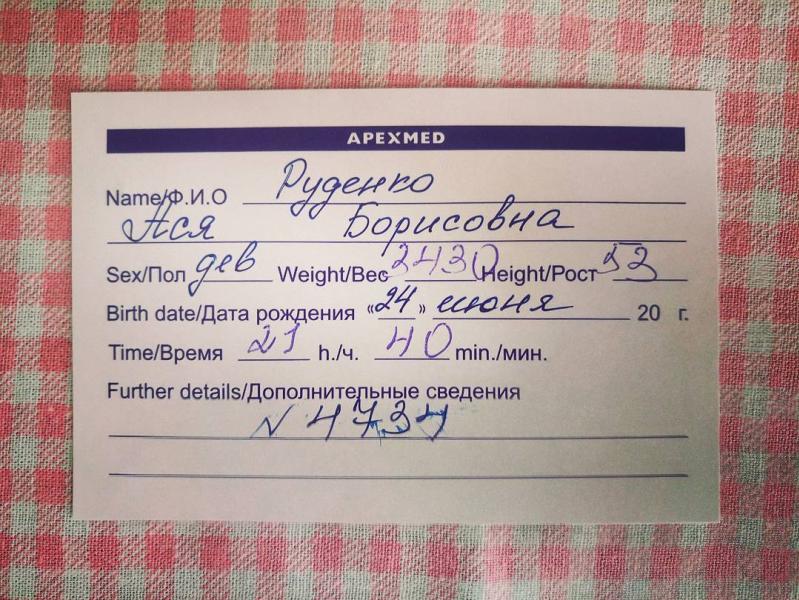 APEXMED
Name/Ф.И.О Руденко
Ася Борисовна
Sex/Пол дев Weight/Вес 3430 Height/Рост 53
Birth date/Дата рождения «24» июня 20 г.
Time/Время 21 h./ч. 40 min./мин.
Further details/Дополнительные сведения
N 4734